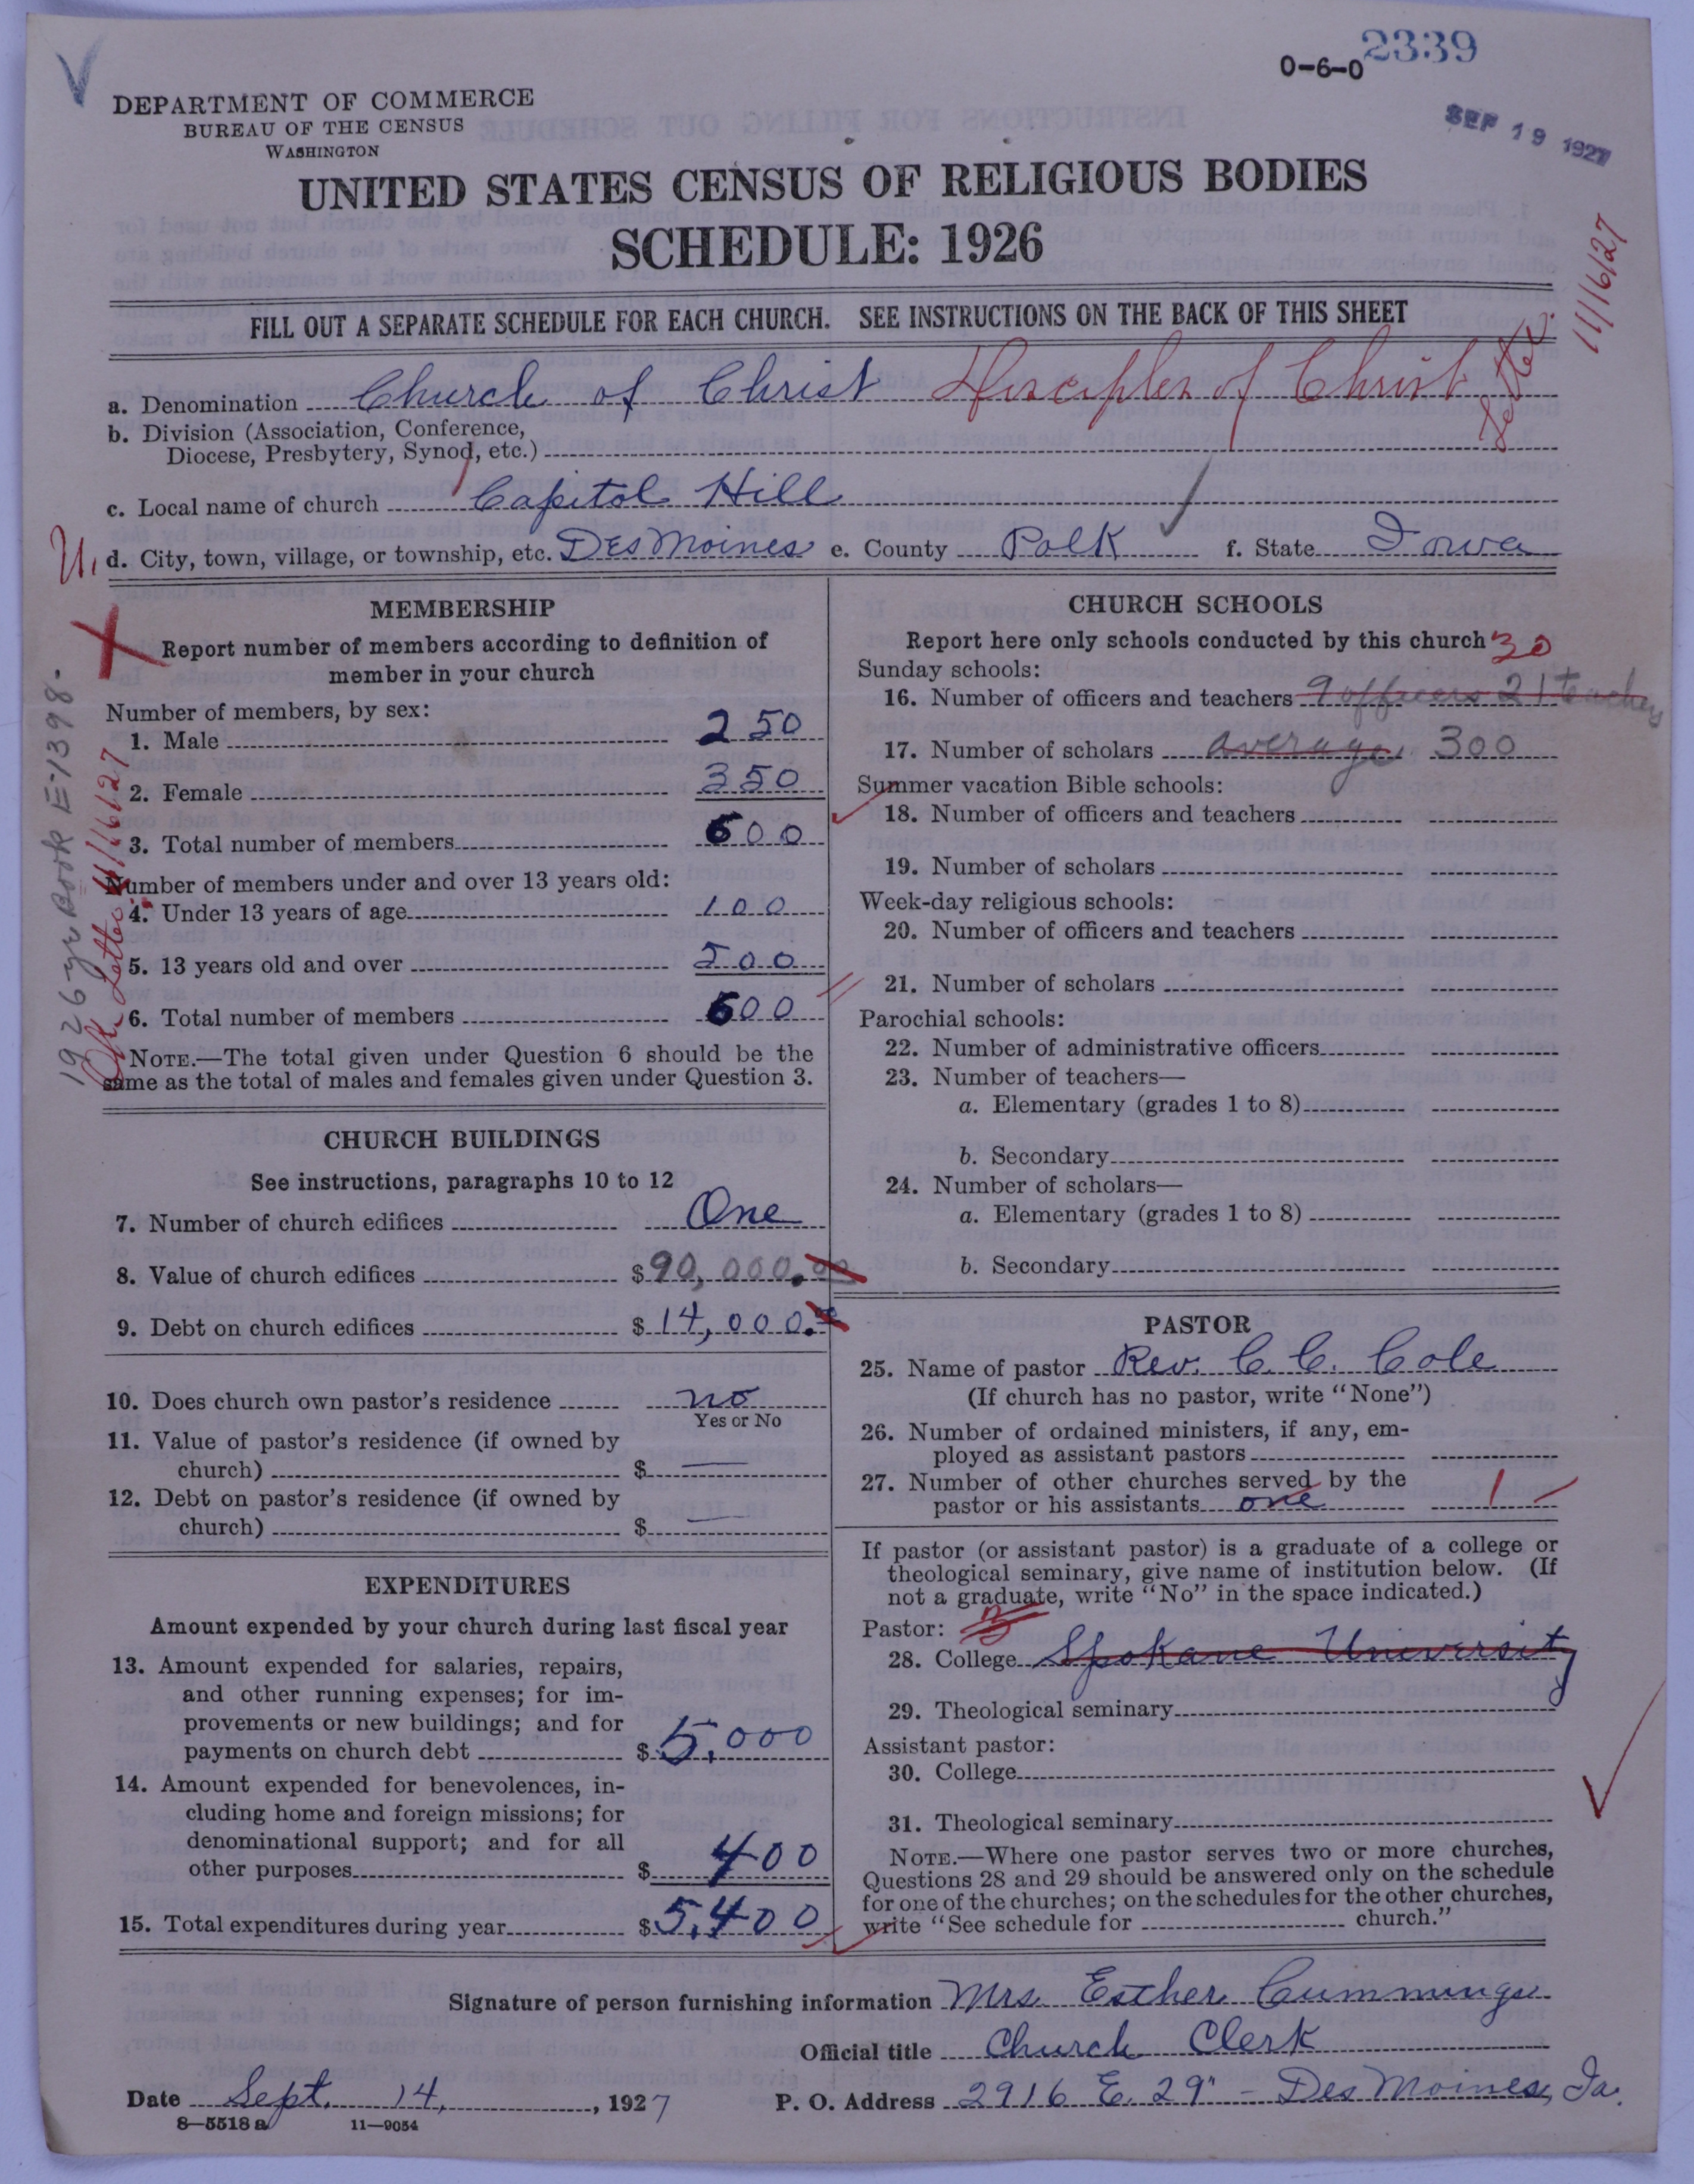 2339
0-6-0
SEP 19 1927
DEPARTMENT OF COMMERCE
BUREAU OF THE CENSUS
WASHINGTON
UNITED STATES CENSUS OF RELIGIOUS BODIES
SCHEDULE: 1926
11/16/27
FILL OUT A SEPARATE SCHEDULE FOR EACH CHURCH. SEE INSTRUCTIONS ON THE BACK OF THIS SHEET
a. Denomination Church of Christ Disciples of Christ Letter.
b. Division (Association, Conference,
Diocese, Presbytery, Synod, etc.)
c. Local name of church Capitol Hill
U. d. City, town, village, or township, etc. Des Moines e. County Polk f. State Iowa
1926 yr Book E-1398.
Letter 11/16/27
MEMBERSHIP
Report number of members according to definition of
member in your church
Number of members, by sex:
1. Male 250
2. Female 350
3. Total number of members 600
Number of members under and over 13 years old:
4. Under 13 years of age 100
5. 13 years old and over 500
6. Total number of members 600
NOTE.—The total given under Question 6 should be the
same as the total of males and females given under Question 3.
CHURCH BUILDINGS
See instructions, paragraphs 10 to 12
7. Number of church edifices One
8. Value of church edifices $90,000.00
9. Debt on church edifices $14,000.00
10. Does church own pastor's residence no
Yes or No
11. Value of pastor's residence (if owned by
church) $ —
12. Debt on pastor's residence (if owned by
church) $ —
EXPENDITURES
Amount expended by your church during last fiscal year
13. Amount expended for salaries, repairs,
and other running expenses; for im-
provements or new buildings; and for
payments on church debt $5,000
14. Amount expended for benevolences, in-
cluding home and foreign missions; for
denominational support; and for all
other purposes $400
15. Total expenditures during year $5,400
CHURCH SCHOOLS
Report here only schools conducted by this church 30
Sunday schools:
16. Number of officers and teachers 9 officers 21 teachers
17. Number of scholars average 300
Summer vacation Bible schools:
18. Number of officers and teachers
19. Number of scholars
Week-day religious schools:
20. Number of officers and teachers
21. Number of scholars
Parochial schools:
22. Number of administrative officers
23. Number of teachers—
a. Elementary (grades 1 to 8)
b. Secondary
24. Number of scholars—
a. Elementary (grades 1 to 8)
b. Secondary
PASTOR
25. Name of pastor Rev. C. C. Cole
(If church has no pastor, write "None")
26. Number of ordained ministers, if any, em-
ployed as assistant pastors
27. Number of other churches served by the
pastor or his assistants one 1
If pastor (or assistant pastor) is a graduate of a college or
theological seminary, give name of institution below. (If
not a graduate, write "No" in the space indicated.)
Pastor:
28. College Spokane University
29. Theological seminary
Assistant pastor:
30. College
31. Theological seminary
NOTE.—Where one pastor serves two or more churches,
Questions 28 and 29 should be answered only on the schedule
for one of the churches; on the schedules for the other churches,
write "See schedule for church."
Signature of person furnishing information Mrs. Esther Cummings
Official title Church Clerk
Date Sept. 14, 1927 P. O. Address 2916 E. 29" - Des Moines, Ia.
8—5518 a 11—9054